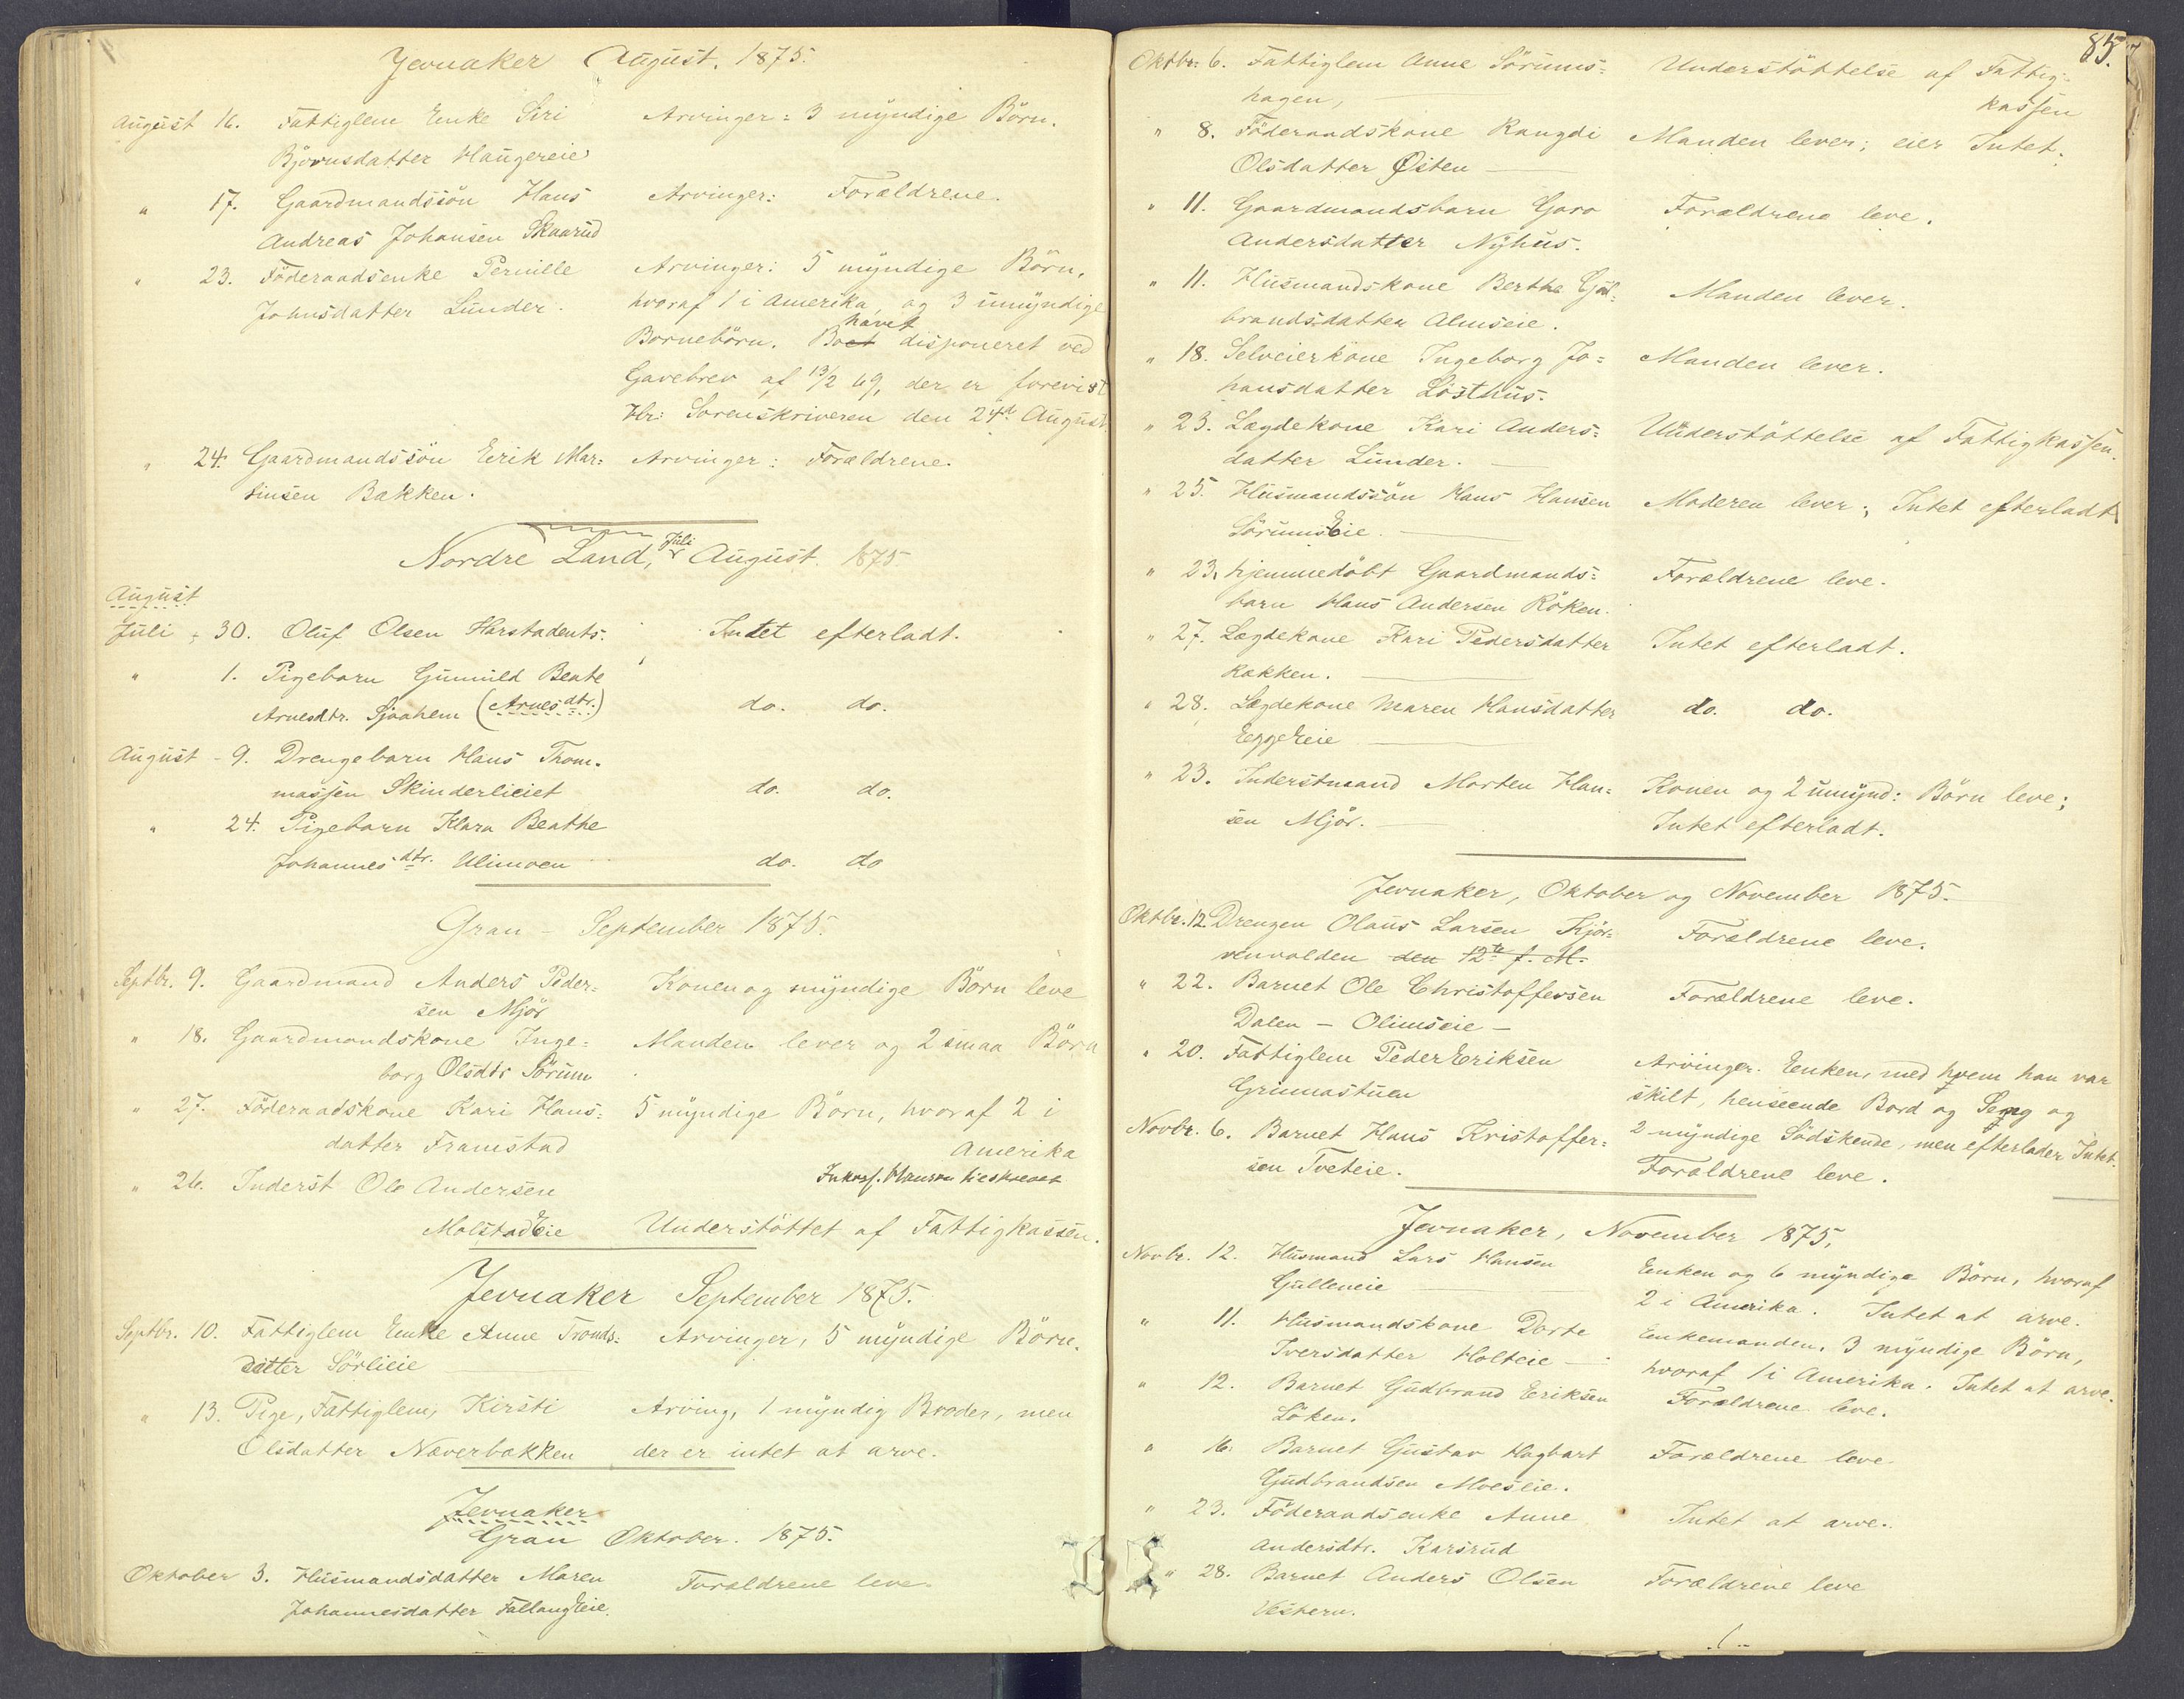 Jevnaker August. 1875.
August 16. Fattiglem Enke Siri Arvinger: 3 myndige Börn.
Bjørnsdatter Haugereie
" 17. Gaardmandssön Hans Arvinger: Forældrene.
Andreas Johansen Skaarud
" 23. Föderaadsenke Pernille Arvinger: 5 myndige Börn,
Johnsdatter Lunder. hvoraf 1 i Amerika og 3 umyndige
Bornebörn. Boet havet disponeret ved
Gavebrev af 13/2 69, der er forevist
Hr: Sorenskriveren den 24de August.
" 24. Gaardmandssön Eirik Mar= Arvinger: Forældrene.
tinsen Bakken.
Nordre Land, Juli August. 1875
August
Juli 30. Oluf Olsen Harstadents: Intet efterladt.
" 1. Pigebarn Gunnild Beate
Arnesdtr. Sjaahem (Arnesdtr.) do. do.
August - 9. Drengebarn Hans Thom-
massen Skinderlieiet do. do.
" 24. Pigebarn Klara Beathe
Johannesdtr. Ulimoen do. do
Gran - September 1875.
Septbr. 9. Gaardmand Anders Peder= Konen og myndige Börn leve
sen Mjör
" 18. Gaardmandskone Inge= Manden lever og 2 smaa Börn
borg Olsdtr Sörum
" 27. Föderaadskone Kari Hans= 5 myndige Börn, hvoraf 2 i
datter Framstad Amerika
" 26. Inderst Ole Andersen
MolstadEie Understöttet af Fattigkassen.
Jevnaker September 1875.
Septbr. 10. Fattiglem Enke Anne Tronds= Arvinger, 5 myndige Börn.
datter Sörlieie
" 13. Pige, Fattiglem, Kirsti Arving, 1 myndig Broder, men
Olsdatter Næverbakken der er intet at arve.
Jevnaker
Gran Oktober. 1875.
Oktober 3. Husmandsdatter Maren Forældrene leve.
Johannesdatter FallangEie.
85.
Oktbr: 6. Fattiglem Anne Sörums= Understöttelse af Fattig-
hagen, kassen
" 8. Föderaadskone Rangdi Manden lever; eier Intet.
Olsdatter Østen
" 11. Gaardmandsbarn Goro Forældrene leve.
Andersdatter Nyhus.
" 11. Husmandskone Berthe Gul= Manden lever.
brandsdatter Almseie.
" 18. Selveierkone Ingeborg Jo= Manden lever.
hansdatter Lösthus.
" 23. Lægdekone Kari Anders= Understöttelse af Fattigkassen.
datter Lunder.
" 25. Husmandssön Hans Hansen Moderen lever; Intet efterladt
SörumsEie.
" 23. hjemmedöbt Gaardmands= Forældrene leve.
barn Hans Andersen Röken.
" 27. Lægdekone Kari Pedersdatter Intet efterladt.
Kokken.
" 28. Lægdekone Maren Hansdatter do. do.
EggeEie
" 23. Inderstmand Morten Han= Konen og 2 umynd: Börn leve;
sen Mjör. Intet efterladt.
Jevnaker, Oktober og November 1875.
Oktbr. 12. Drengen Olaus Larsen Kjör= Forældrene leve.
venvolden den 12te f. M.
" 22. Barnet Ole Christoffersen Forældrene leve.
Dalen - Olimseie -
" 20. Fattiglem Peder Eriksen Arvinger. Enken, med hvem han var
Grinnastuen skilt, henseende Bord og Seng og
Novbr. 6. Barnet Hans Kristoffer= 2 myndige Södskende, men efterlader Intet.
sen Tveteie. Forældrene leve.
Jevnaker, November 1875,
Novbr. 12. Husmand Lars Hansen Enken og 6 myndige Börn, hvoraf
Gulleneie 2 i Amerika. Intet at arve.
" 11. Husmandskone Dorte Enkemanden. 3 myndige Börn,
Iversdatter Holteie - hvoraf 1 i Amerika. Intet at arve.
" 12. Barnet Gudbrand Eriksen Forældrene leve.
Löken.
" 16. Barnet Gustav Hagbart Forældrene leve
Gudbrandsen Moeseie.
" 23. Föderaadsenke Anne Intet at arve.
Andersdtr. Karsrud
" 28. Barnet Anders Olsen Forældrene leve
Vestern.